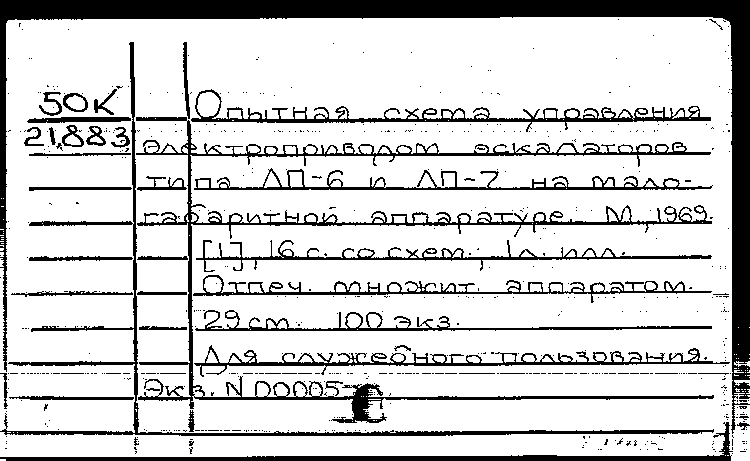 50К
21,883
Опытная схема управления
электроприводом эскалаторов
типа ЛП-6 и ЛП-7 на мало-
габаритной аппаратуре. М., 1969.
[1], 16 с. со схем.; 1 л. илл.
Отпеч. множит. аппаратом.
29 см. 100 экз.
Для служебного пользования.
Экз. N 00005
С